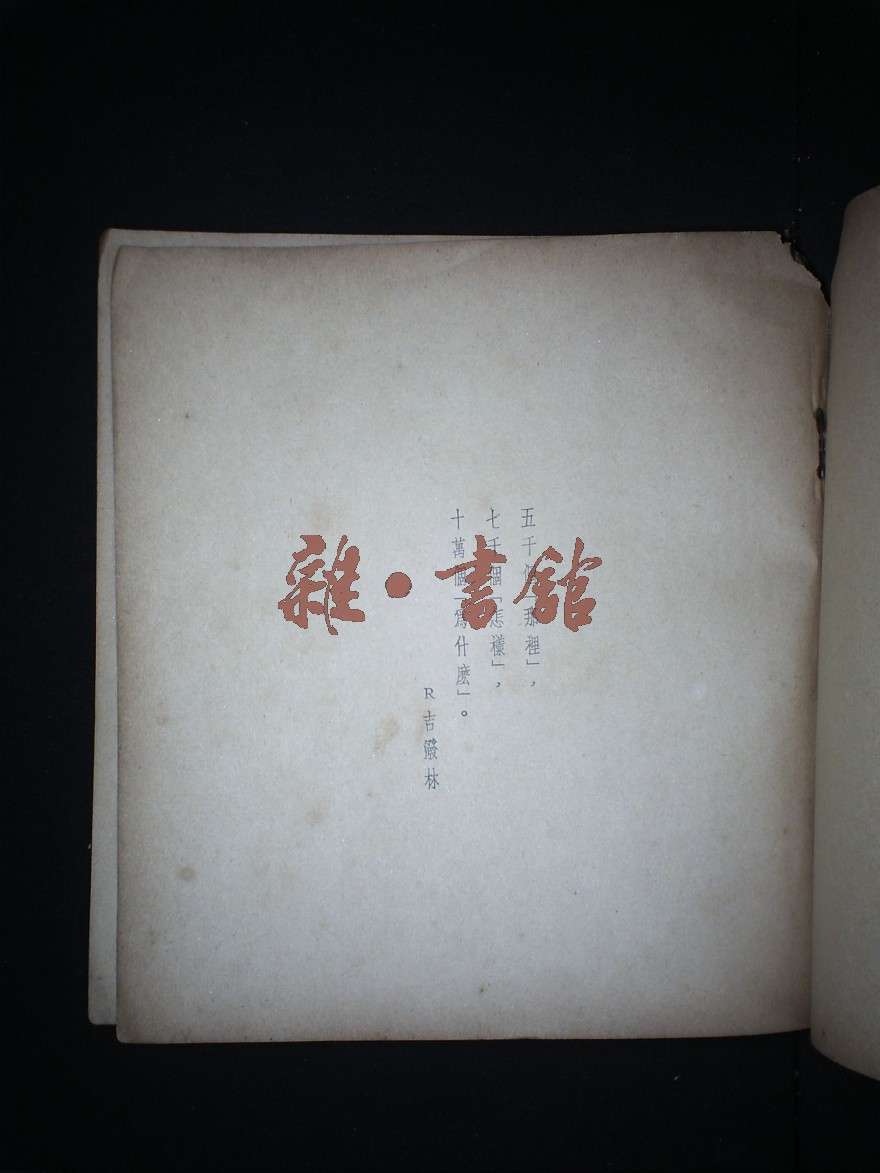 五千個「那裡」，
七千個「怎樣」，
十萬個「爲什麽」。
R吉潑林
雜・書館